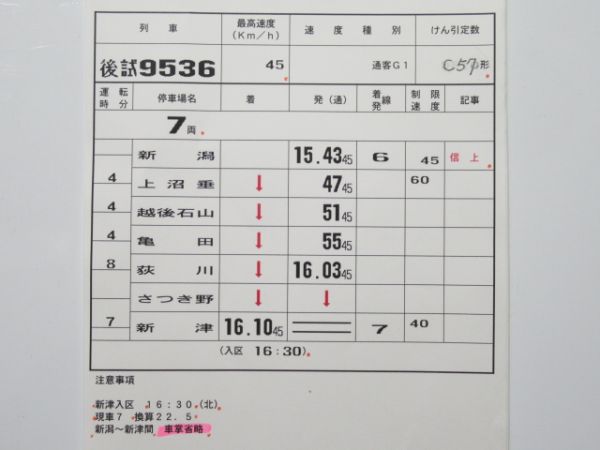 列車 最高速度(Km/h) 速度種別 けん引定数
後試9536 45 通客G1 C57形
運転時分 停車場名 着 発(通) 着発線 制限速度 記事
7両
新潟 15.43 45 6 45 信上
4 上沼垂 ↓ 47 45 60
4 越後石山 ↓ 51 45
4 亀田 ↓ 55 45
8 荻川 ↓ 16.03 45
さつき野 ↓ ↓
7 新津 16.10 45 7 40
(入区 16:30)
注意事項
新津入区 16:30(北)
現車7 換算22.5
新潟~新津間 車掌省略